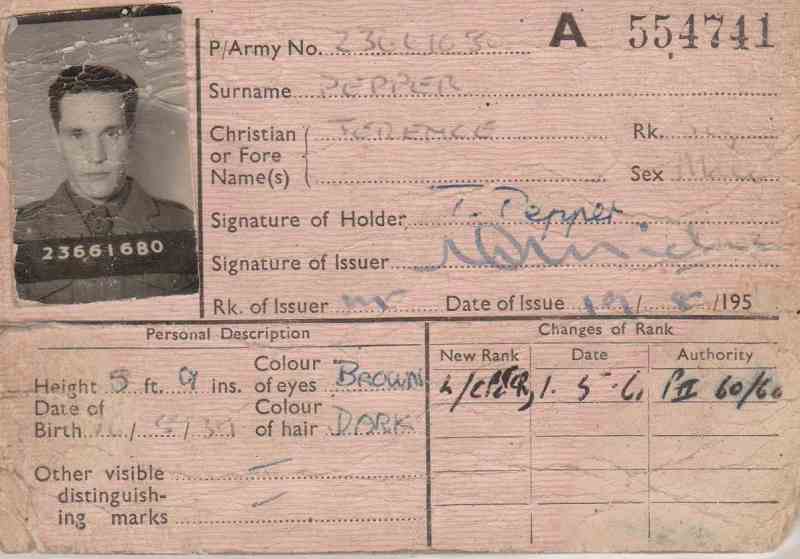 P/Army No. 23661680 A 554741
Surname PEPPER
Christian or Fore Name(s) TERENCE Rk.
Sex Male
Signature of Holder T. Pepper
Signature of Issuer
236616B0
Rk. of Issuer Date of Issue 19/ 8 /195
Personal Description
Height 5 ft. 9 ins.
Colour of eyes BROWN
Date of Birth / /
Colour of hair DARK
Other visible distinguish-ing marks
Changes of Rank
New Rank Date Authority
L/CPL 1. 5. 6 PII 60/60